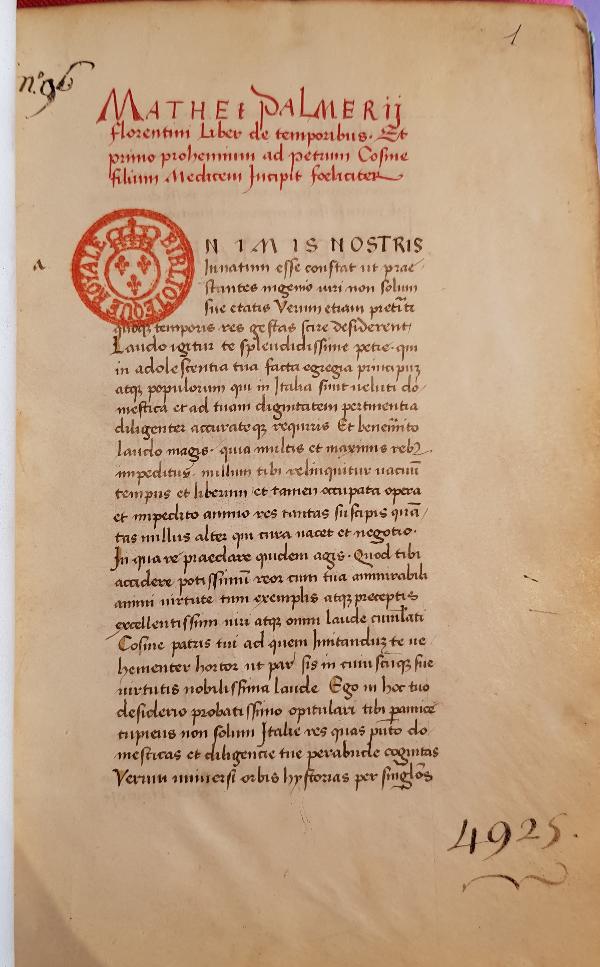 1
n.º 96
MATHEI PALMERIJ
florentini Liber de temporibus. Et
primo prohemium ad petrum Cosme
filium Medicem Incipit foeliciter
BIBLIOTEQUE ROYALE
a
NIMIS NOSTRIS
Innatum esse constat ut prae-
stantes ingenio uiri non solum
sue etatis Verum etiam
quoqꝫ temporis res gestas scire desiderent
Laudo igitur te splendidissime petre qui
in adolescentia tua facta egregia principuꝫ
atqꝫ populorum qui in Italia sunt ueluti do-
mestica et ad tuam dignitatem pertinentia
diligenter accurateqꝫ requiris Et
laudo magis quia multis et maximis
impeditus nullum tibi relinquitur
tempus et liberum et tamen occupata opera
et impedito animo res tantas suscipis
tas nullus alter qui cura uacet et negotio.
In qua re praeclare quidem agis. Quod tibi
accidere potissimũ reor cum tua ammirabili
animi uirtute tum exemplis atqꝫ preceptis
excellentissimi uiri atqꝫ omni laude
Cosme patris tui ad quem Imitanduꝫ te ue
hementer hortor ut par sis in cuiuscuqꝫ sue
uirtutis nobilissima laude Ego in hoc tuo
desiderio probatissimo opitulari tibi
cupiens non solum Italie res quas puto do-
mesticas et diligencie tue perabunde cognitas
Verum uniuersi orbis hystorias per
4925.